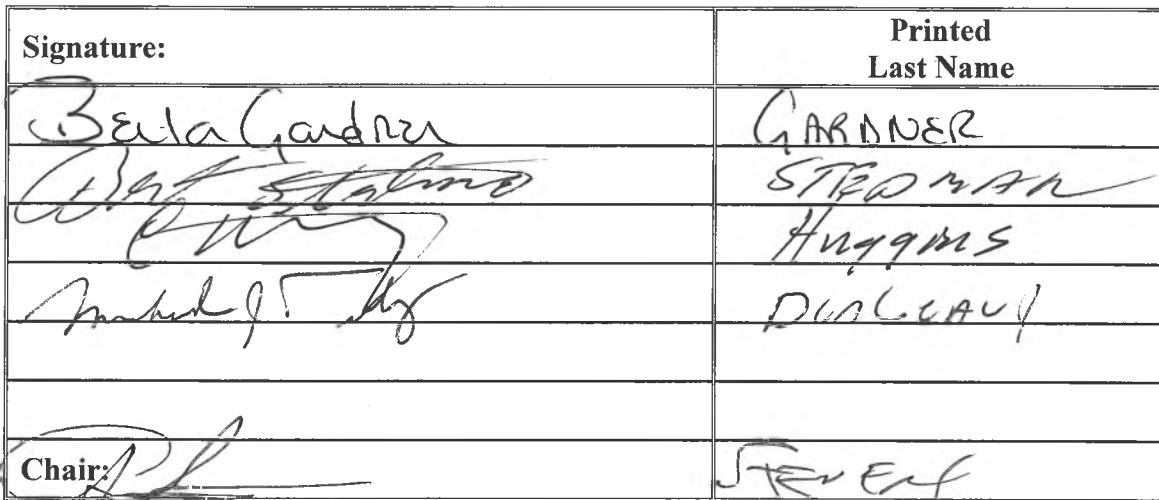 Signature:
Printed
Last Name
Berta Gardner GARDNER
Bert Stedman STEDMAN
Huggins
DUNLEAVY
Chair: STEVENS